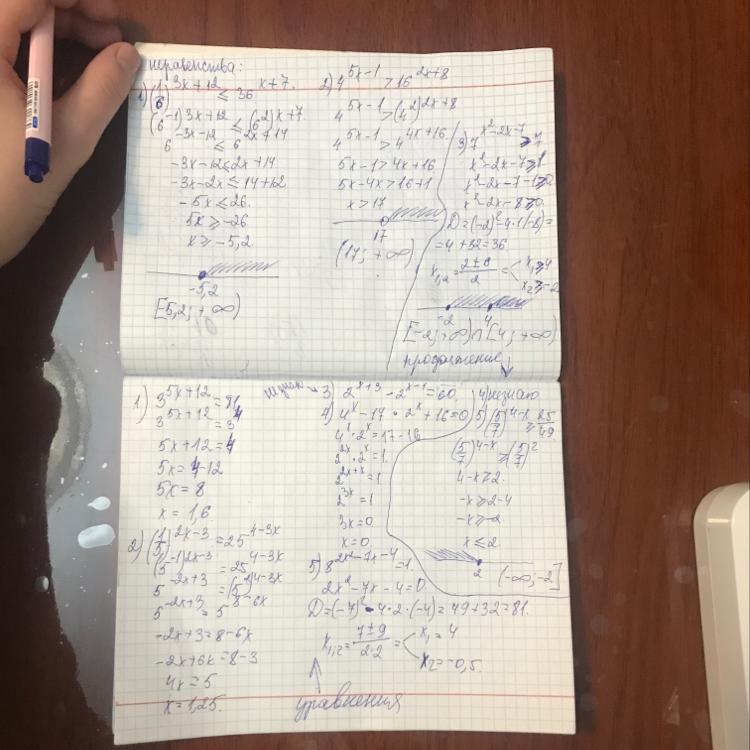 неравенства:
1) (1/6)^{3x+12} ≤ 36^{x+7}.
(6^{-1})^{3x+12} ≤ (6^2)^{x+7}
6^{-3x-12} ≤ 6^{2x+14}
-3x-12≤2x+14
-3x-2x≤14+12
-5x≤26.
5x≥-26
x≥-5,2
-5,2
[5,2; +∞)
2) 4^{5x-1} > 16^{2x+8}
4^{5x-1} > (4^2)^{2x+8}
4^{5x-1} > 4^{4x+16}
5x-1>4x+16
5x-4x>16+1
x>17
17
(17; +∞)
3) 7^{x^2-2x-7} ≥ 7
x^2-2x-7≥1
x^2-2x-7-1≥0
x^2-2x-8≥0
D=(-2)^2-4·1·(-8)=
=4+32=36
x_{1,2} = (2±6)/2 = x_1≥4
x_2≥-2
-2 4
[-2;+∞)∩[4;+∞)
продолжение ↓
1) 3^{5x+12} = 81
3^{5x+12} = 3^4
5x+12=4
5x=4-12
5x=8
x=1,6
2) (1/5)^{2x-3} = 25^{4-3x}
(5^{-1})^{2x-3} = 25^{4-3x}
5^{-2x+3} = (5^2)^{4-3x}
5^{-2x+3} = 5^{8-6x}
-2x+3=8-6x
-2x+6x=8-3
4x=5
x=1,25.
незнаю → 3) 2^{x+3} - 2^{x-1} = 60
4) 4^x-17·2^x+16=0
4^x·2^x=17-16
2^{2x}·2^x=1
2^{2x+x}=1
2^{3x}=1
3x=0
x=0
5) 8^{2x^2-7x-4}=1
2x^2-7x-4=0
D=(-7)^2-4·2·(-4)=49+32=81.
x_{1,2} = (7±9)/(2·2) = x_1=4
x_2=-0,5.
уравнения
4) незнаю
5) (5/7)^{4-x} ≥ 25/49
(5/7)^{4-x} ≥ (5/7)^2
4-x≥2.
-x≥2-4
-x≥-2
x≤2
2 (-∞;-2]